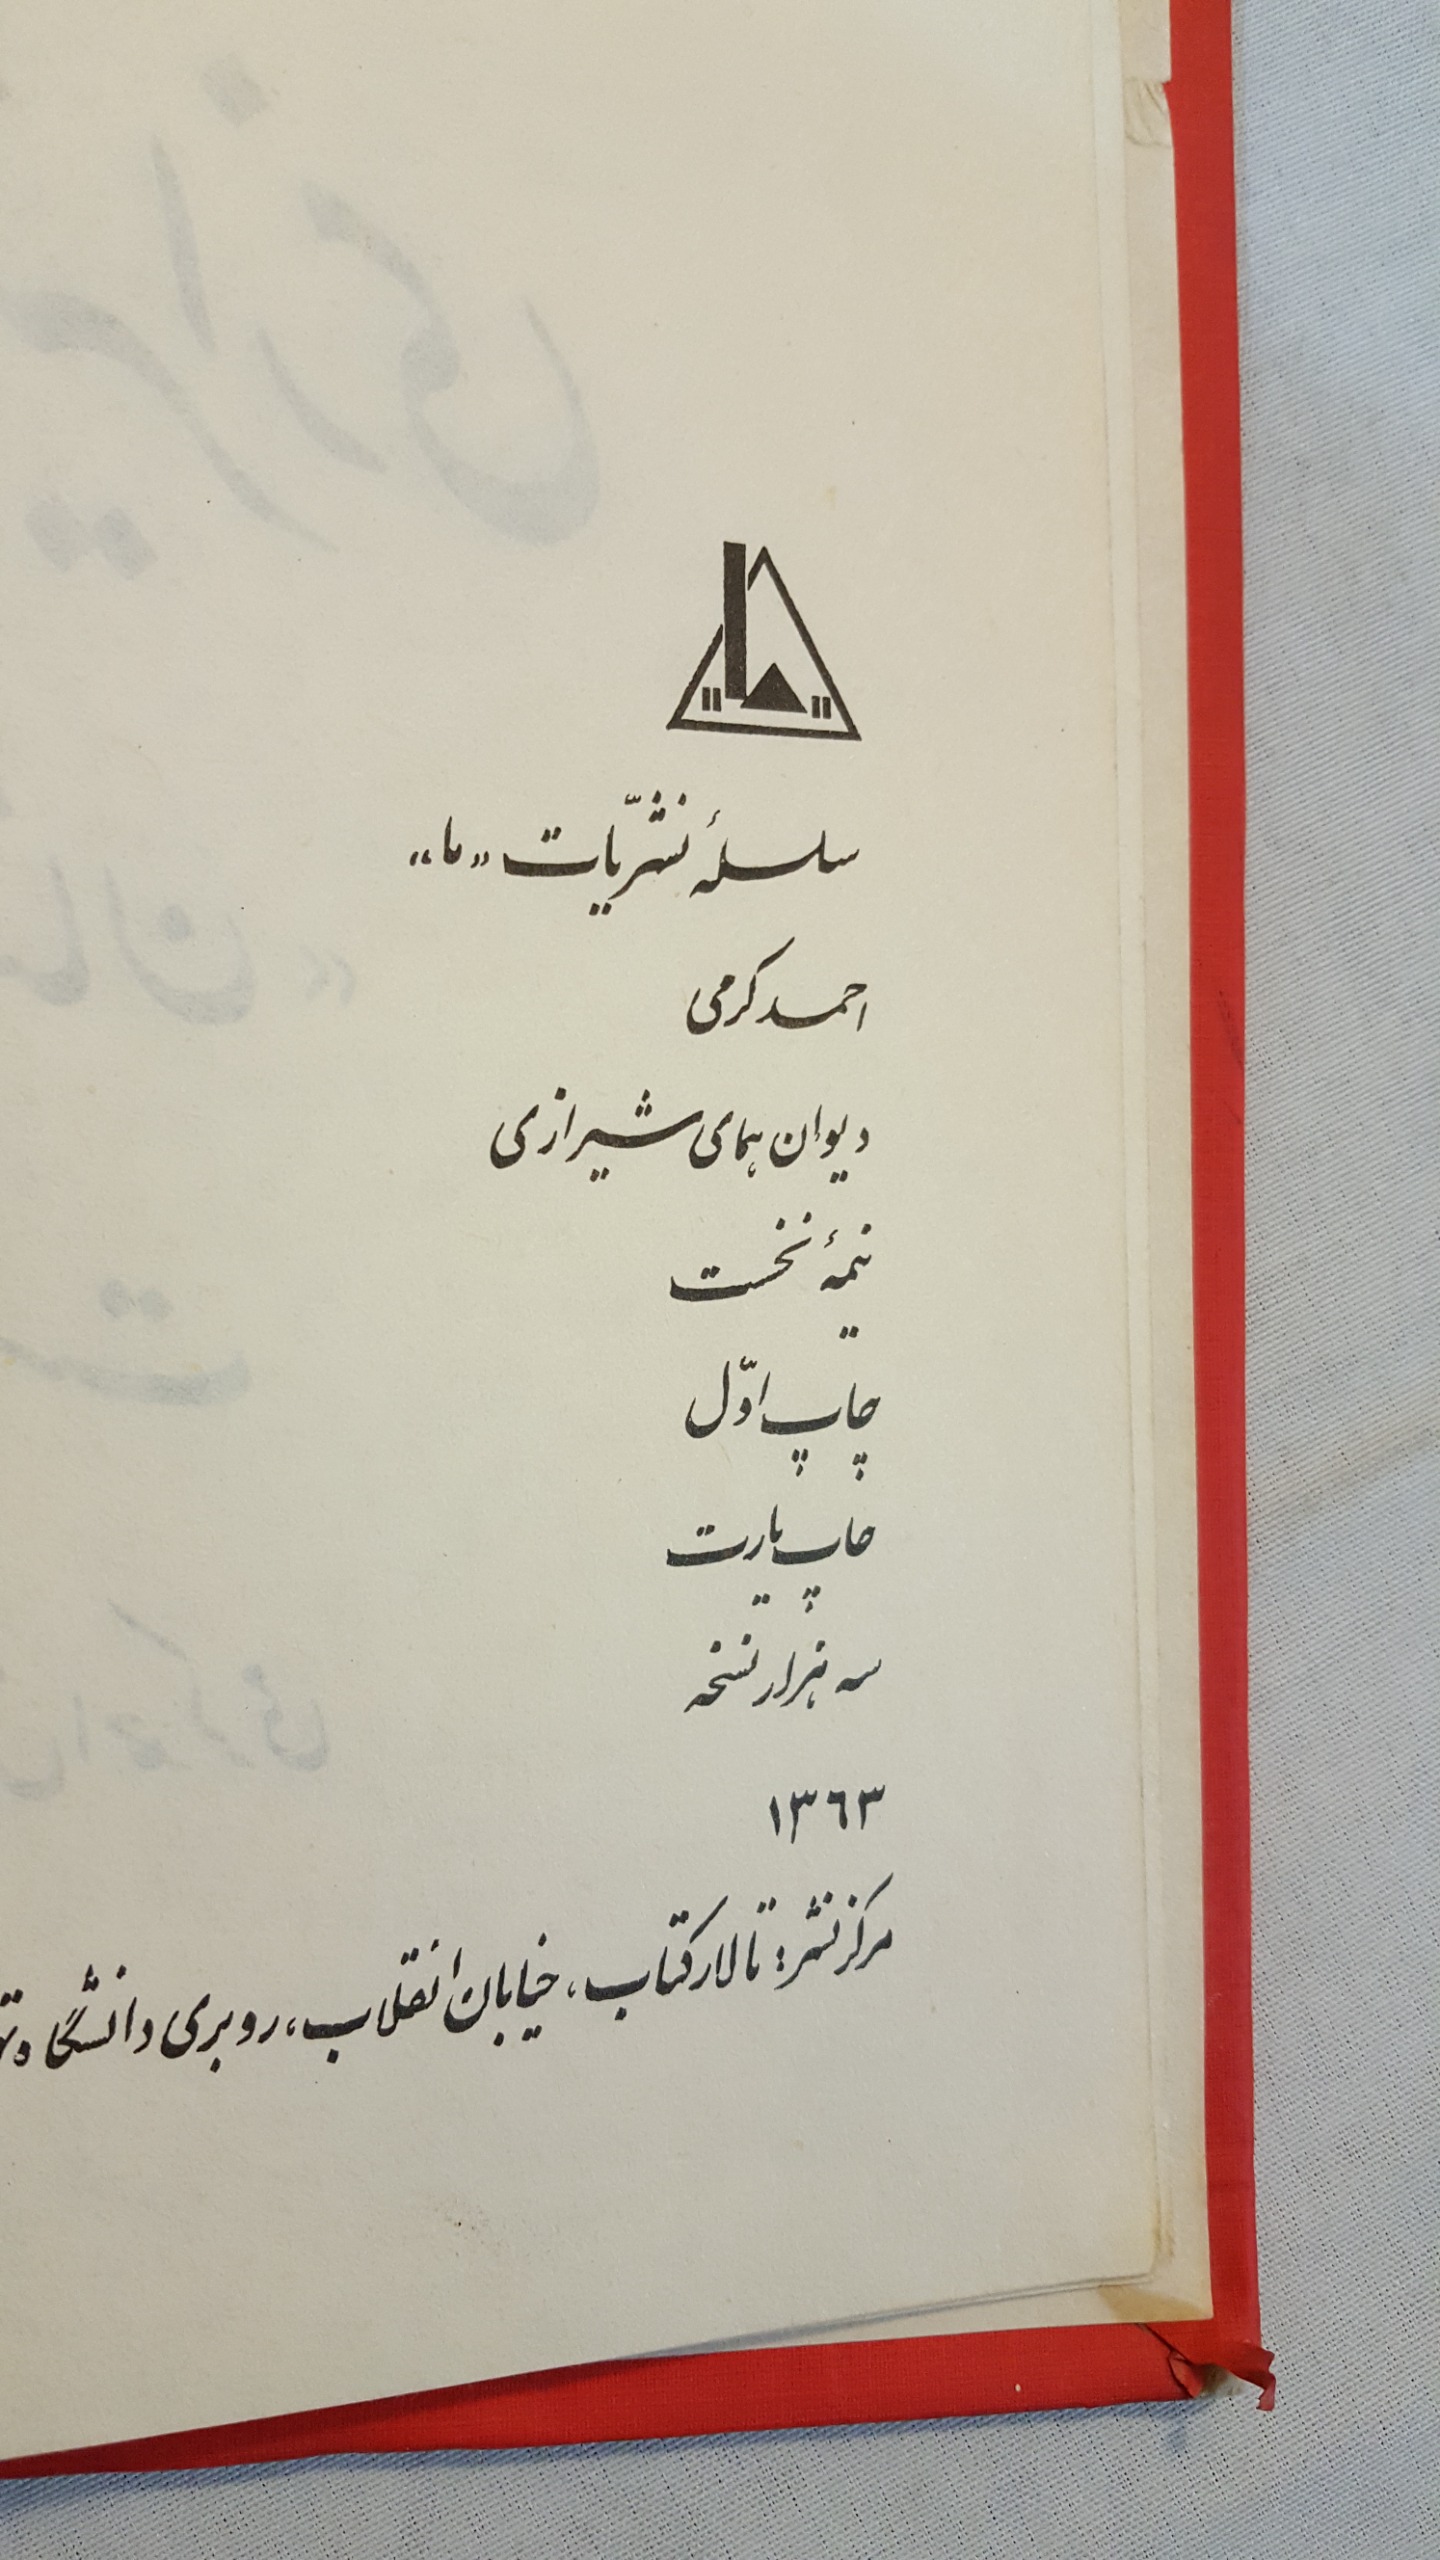 سلسلهٔ نشریّات «ما»
احمد کرمی
دیوان همای شیرازی
نیمهٔ نخست
چاپ اوّل
چاپ پارت
سه هزار نسخه
۱۳۶۳
مرکز نشر: تالار کتاب، خیابان انقلاب، روبری دانشگاه